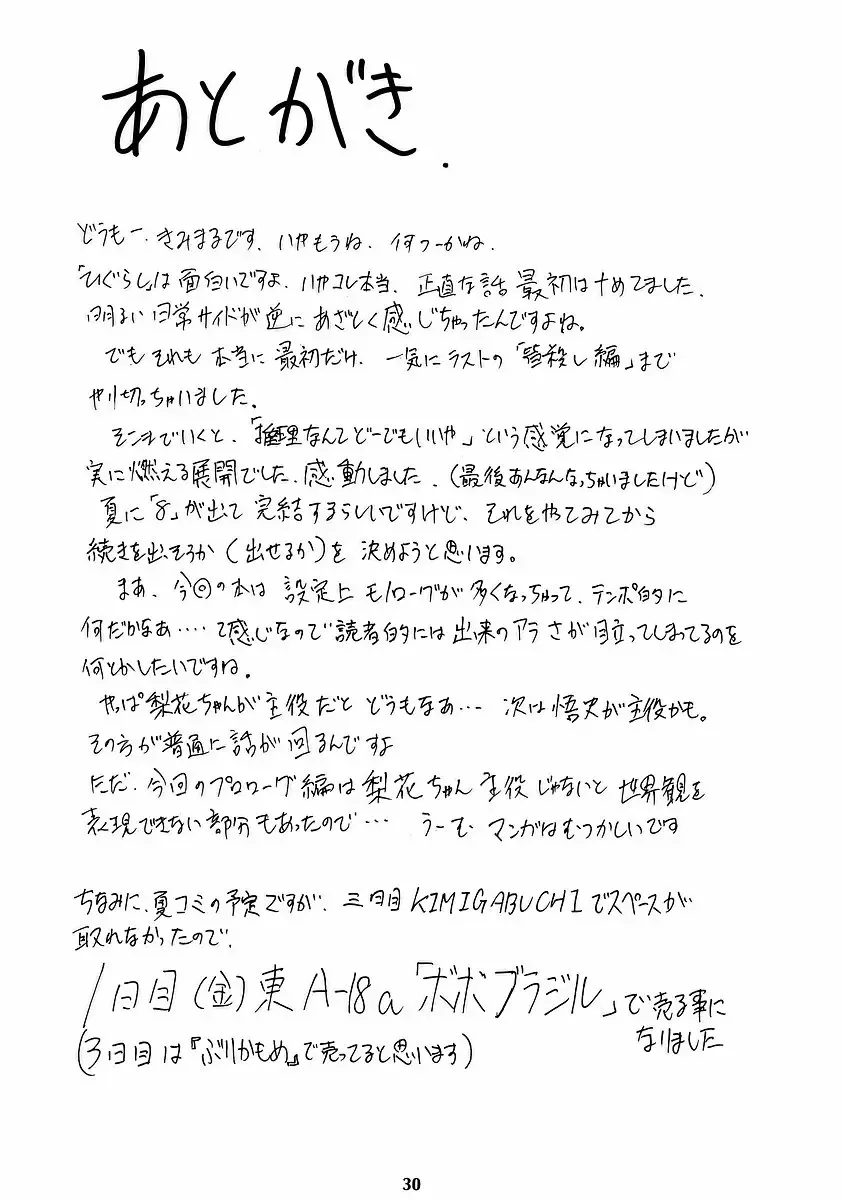 あとがき.
どうもー、きみまるです、いやもうね、何つーかね、
「ひぐらし」は面白いですよ、いやコレ本当、正直な話最初はナめてました、
明るい日常サイドが逆にあざとく感じちゃったんですよね。
でもそれも本当に最初だけ、一気にラストの「皆殺し編」まで
やり切っちゃいました。
そこまでいくと、「推理なんてどーでもいいや」という感覚になってしまいましたが
実に燃える展開でした、感動しました、(最後あんなんなっちゃいましたけど)
夏に「8」が出て完結するらしいですけど、それをやってみてから
続きを出そうか(出せるか)を決めようと思います。
まあ、今回の本は設定上モノローグが多くなっちゃって、テンポ的に
何だかなあ‥‥て感じなので読者的には出来のアラさが目立ってしまってるのを
何とかしたいですね。
やっぱ梨花ちゃんが主役だとどうもなあ… 次は悟史が主役かも。
その方が普通に話が回るんですよ
ただ、今回のプロローグ編は梨花ちゃん主役じゃないと世界観を
表現できない部分もあったので… うーむ マンガはむつかしいです
ちなみに、夏コミの予定ですが、三日目KIMIGABUCHIでスペースが
取れなかったので、
1日目(金)東A-18a「ボボブラジル」で売る事に
なりました
(3日目は『ぶりかもめ』で売ってると思います)
30